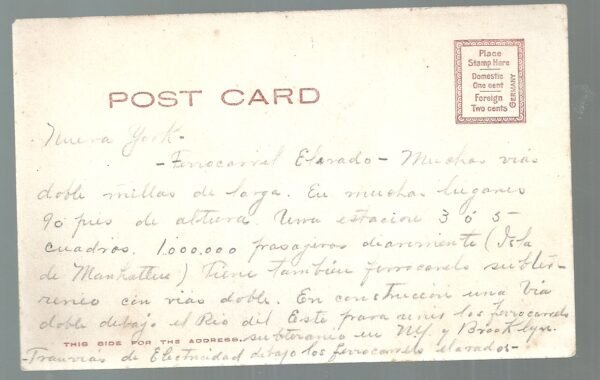 POST CARD
Place
Stamp Here
Domestic
One cent
Foreign
Two cents
GERMANY
Nueva York-
-Ferrocarril Elevado- Muchas vias
doble millas de larga. En muchas lugares
90 pies de altura. Una estacion 3 ó 5
cuadros. 1000,000 pasajeros diariamente (Isla
de Manhatten) Tiene tambien ferrocarels subter-
reneo con vias doble. En construccion una via
doble debajo el Rio del Este para unir los ferrocarrels
THIS SIDE FOR THE ADDRESS.
subteranio en N.Y. y Brooklyn.
-Tranvias de Electricidad debajo los ferrocarrels elevados-